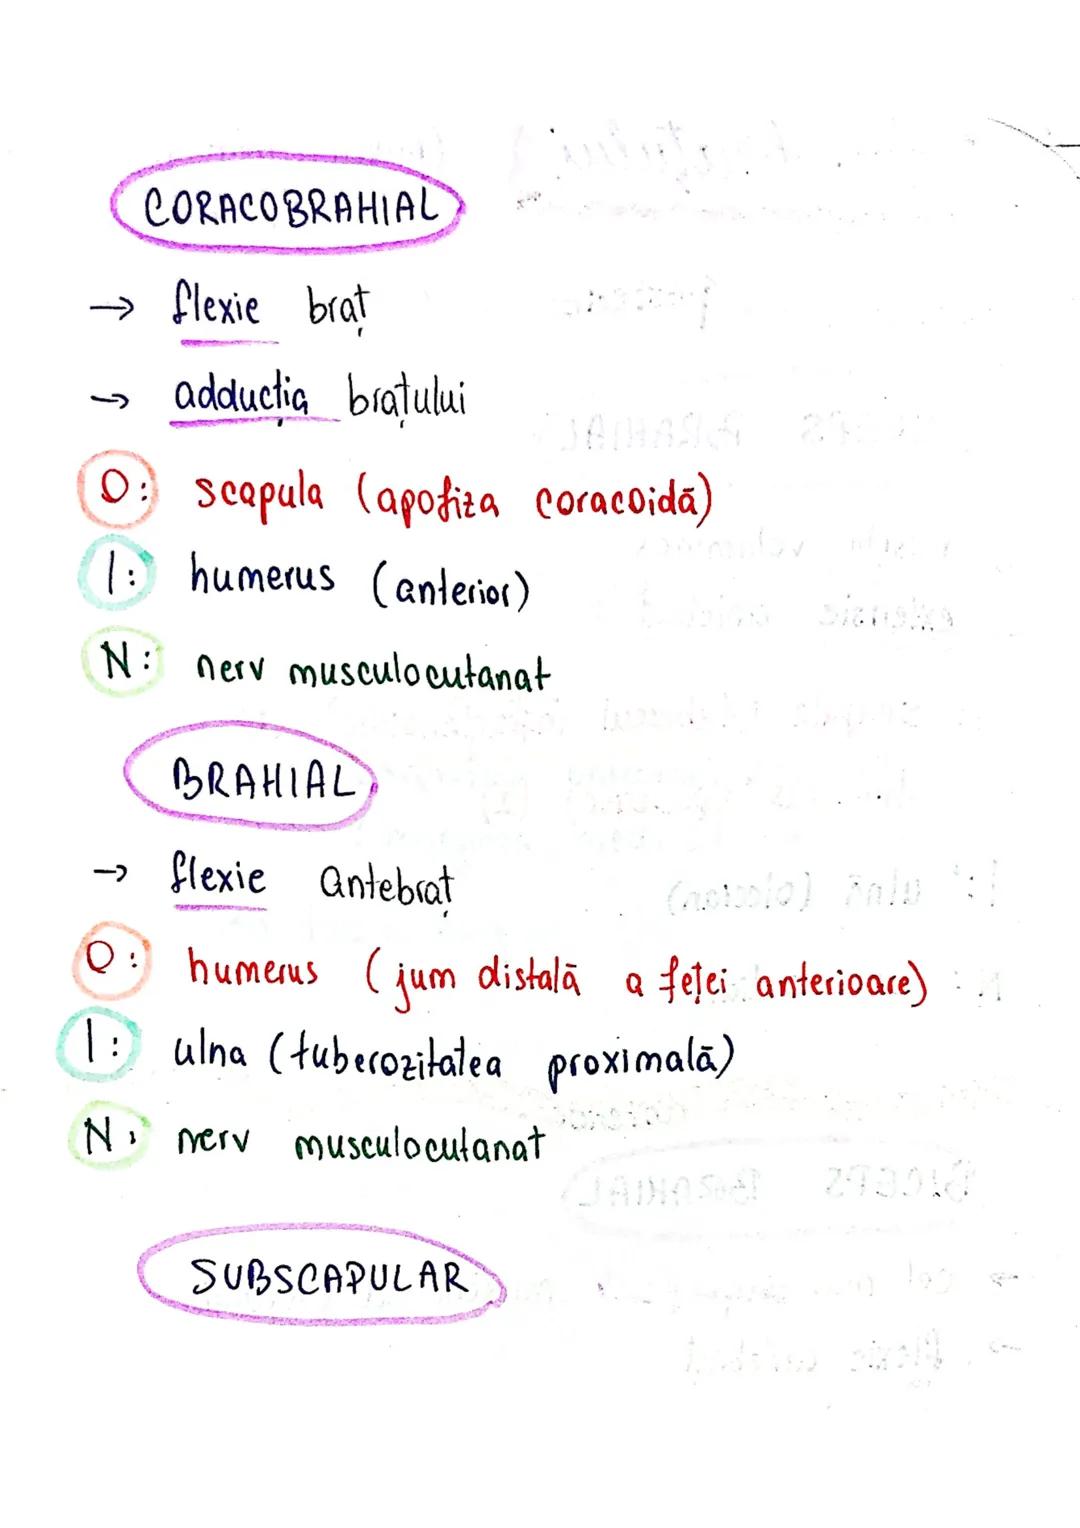 CORACOBRAHIAL
→ flexie braț
→ adducția brațului
O: scapula (apofiza coracoidă)
I: humerus (anterior)
N: nerv musculocutanat
BRAHIAL
→ flexie antebraț
O: humerus (jum distală a feței anterioare)
I: ulna (tuberozitatea proximală)
N: nerv musculocutanat
SUBSCAPULAR